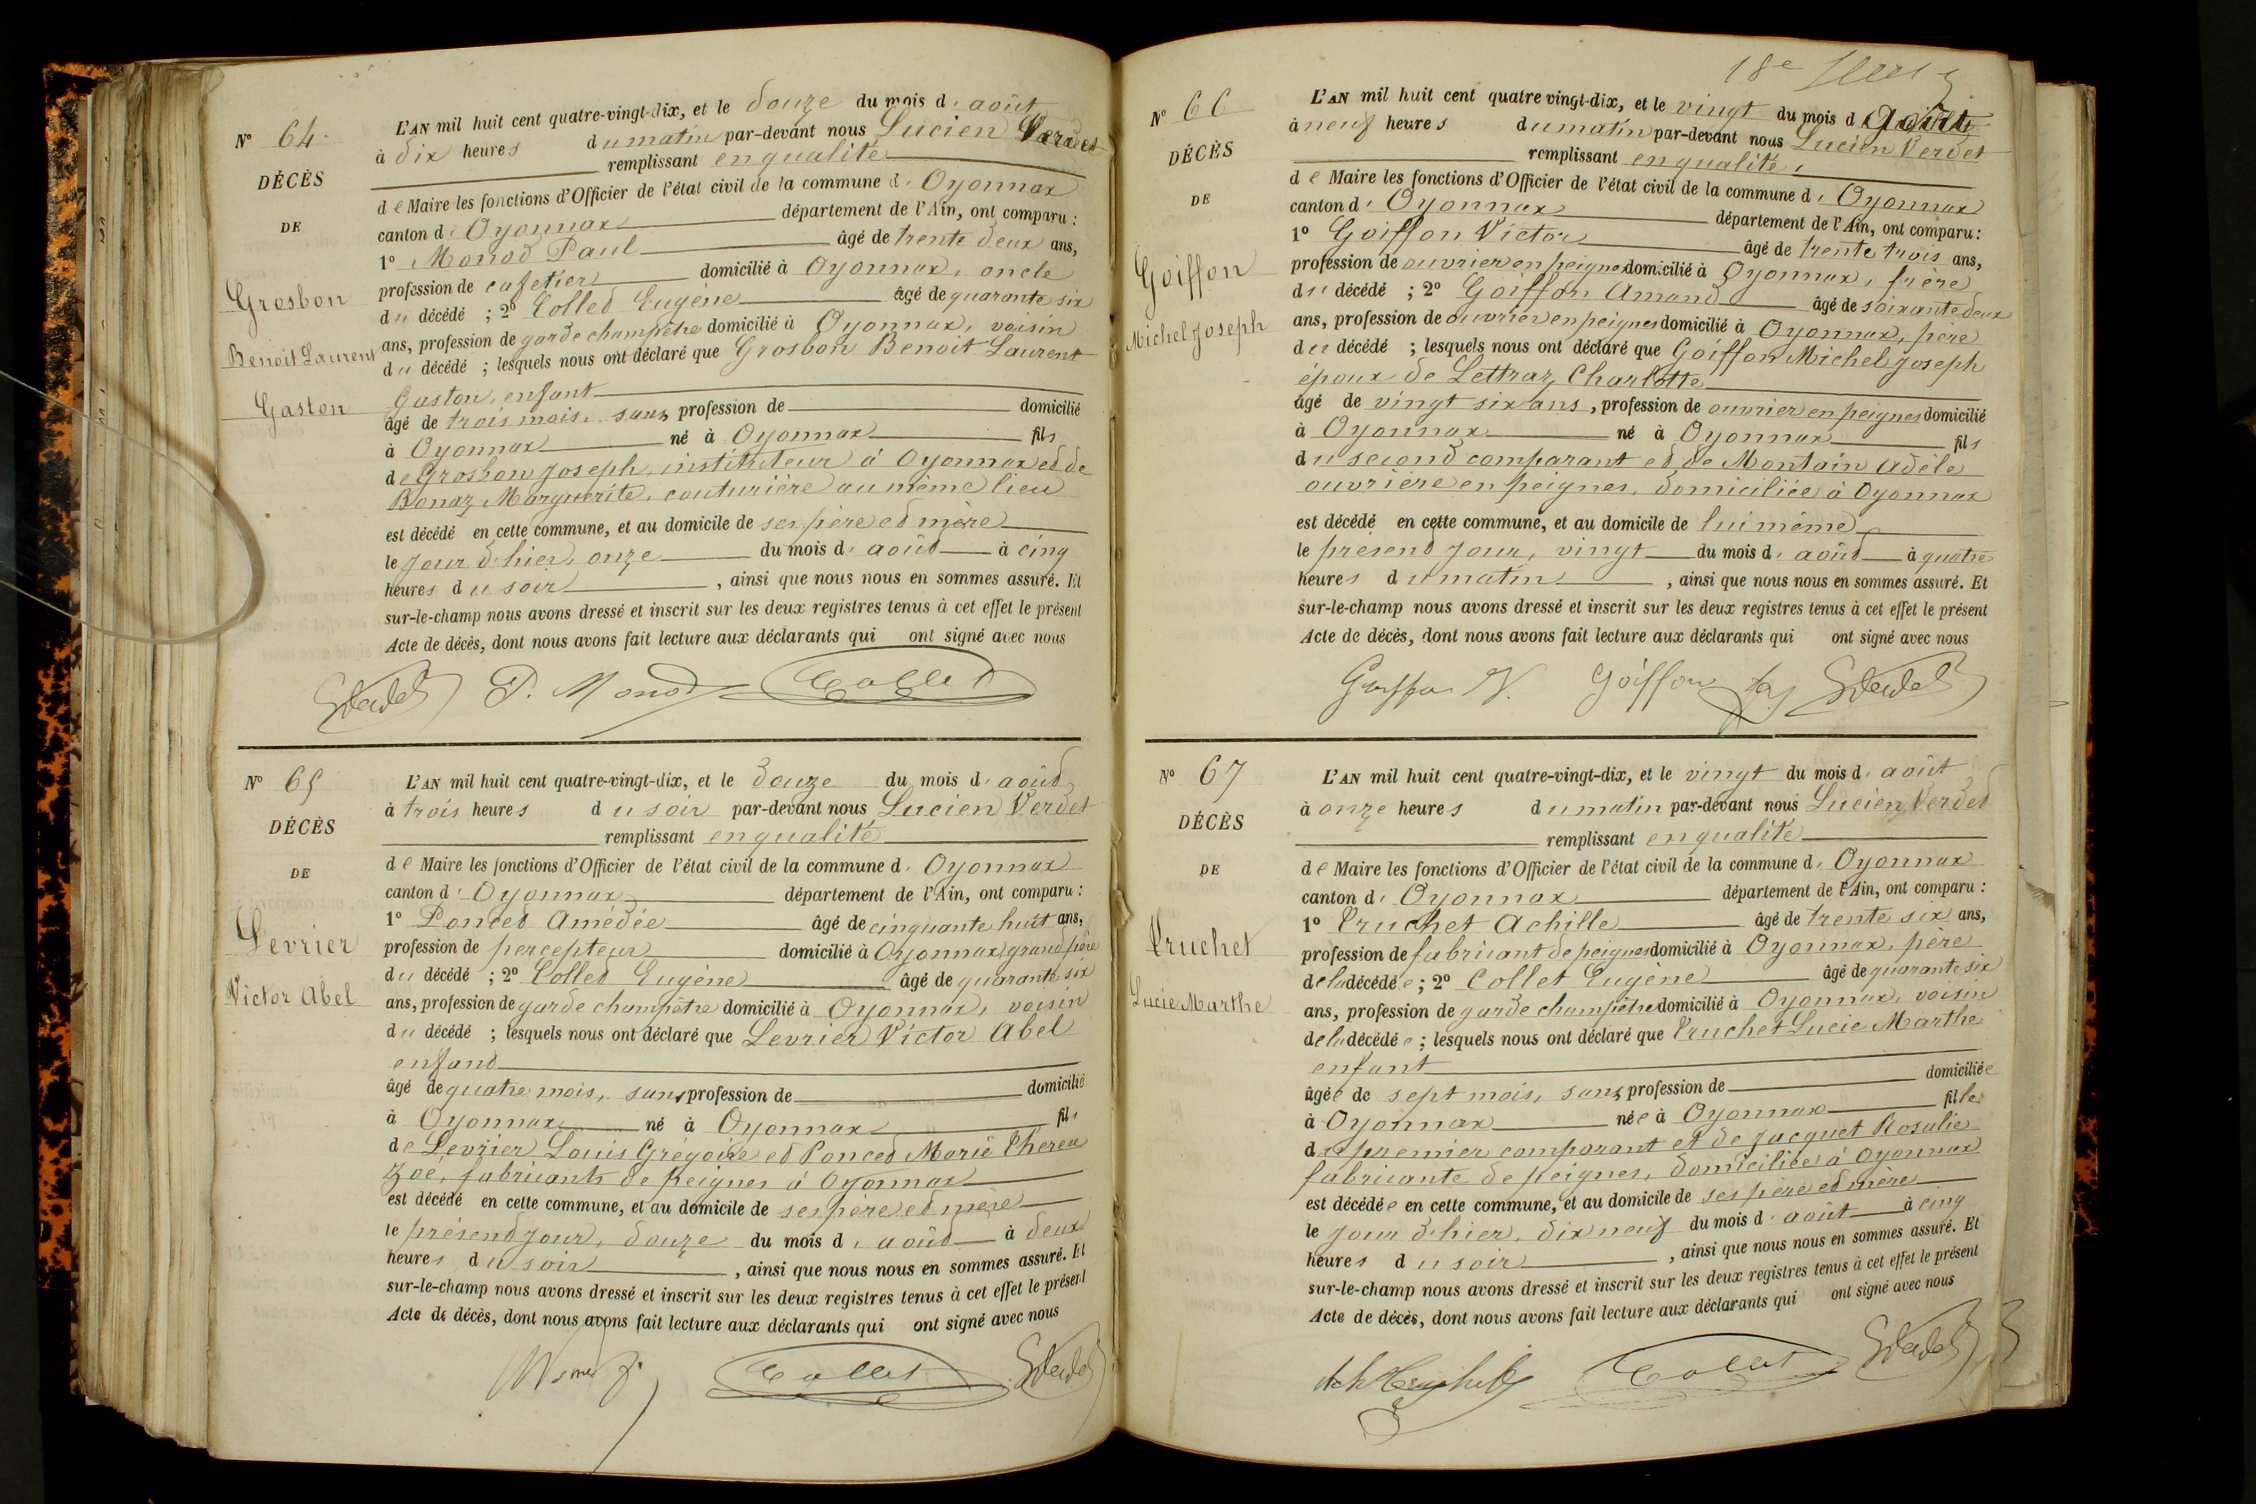 N° 64
DÉCÈS
DE
Grosbon
Benoit Laurent
Gaston
L'AN mil huit cent quatre-vingt-dix, et le douze du mois d' août
à dix heures du matin par-devant nous Lucien Verdet
remplissant en qualité
de Maire les fonctions d'Officier de l'état civil de la commune d' Oyonnax
canton d' Oyonnax département de l'Ain, ont comparu :
1° Monod Paul âgé de trente deux ans,
profession de cafetier domicilié à Oyonnax, oncle
du décédé ; 2° Collet Eugène âgé de quarante six
ans, profession de garde champêtre domicilié à Oyonnax, voisin
du décédé ; lesquels nous ont déclaré que Grosbon Benoit Laurent
Gaston, enfant
âgé de trois mois, sans profession de domicilié
à Oyonnax né à Oyonnax fils
de Grosbon Joseph, instituteur à Oyonnax et de
Bonaz Marguerite, couturière au même lieu
est décédé en cette commune, et au domicile de ses père et mère
le jour d'hier, onze du mois d' août à cinq
heures du soir , ainsi que nous nous en sommes assuré. Et
sur-le-champ nous avons dressé et inscrit sur les deux registres tenus à cet effet le présent
Acte de décès, dont nous avons fait lecture aux déclarants qui ont signé avec nous
LVerdet P. Monod Collet
N° 65
DÉCÈS
DE
Levrier
Victor Abel
L'AN mil huit cent quatre-vingt-dix, et le douze du mois d' août
à trois heures du soir par-devant nous Lucien Verdet
remplissant en qualité
de Maire les fonctions d'Officier de l'état civil de la commune d' Oyonnax
canton d' Oyonnax département de l'Ain, ont comparu :
1° Poncet Amédée âgé de cinquante huit ans,
profession de percepteur domicilié à Oyonnax, grand père
du décédé ; 2° Collet Eugène âgé de quarante six
ans, profession de garde champêtre domicilié à Oyonnax, voisin
du décédé ; lesquels nous ont déclaré que Levrier Victor Abel
enfant
âgé de quatre mois, sans profession de domicilié
à Oyonnax né à Oyonnax fils
de Levrier Louis Grégoire et Poncet Marie
Zoé, fabricants de peignes à Oyonnax
est décédé en cette commune, et au domicile de ses père et mère
le présent jour, douze du mois d' août à deux
heures du soir , ainsi que nous nous en sommes assuré. Et
sur-le-champ nous avons dressé et inscrit sur les deux registres tenus à cet effet le présent
Acte de décès, dont nous avons fait lecture aux déclarants qui ont signé avec nous
Collet LVerdet
18e
N° 66
DÉCÈS
DE
Goiffon
Michel Joseph
L'AN mil huit cent quatre vingt-dix, et le vingt du mois d' Août
à neuf heures du matin par-devant nous Lucien Verdet
remplissant en qualité
de Maire les fonctions d'Officier de l'état civil de la commune d' Oyonnax
canton d' Oyonnax département de l'Ain, ont comparu :
1° Goiffon Victor âgé de trente trois ans,
profession de ouvrier en peignes domicilié à Oyonnax, frère
du décédé ; 2° Goiffon Amand âgé de soixante deux
ans, profession de ouvrier en peignes domicilié à Oyonnax, père
du décédé ; lesquels nous ont déclaré que Goiffon Michel Joseph
époux de Lettraz Charlotte
âgé de vingt six ans, profession de ouvrier en peignes domicilié
à Oyonnax né à Oyonnax fils
du second comparant et de Montain Adèle
ouvrière en peignes, domiciliée à Oyonnax
est décédé en cette commune, et au domicile de lui même
le présent jour, vingt du mois d' août à quatre
heures du matin , ainsi que nous nous en sommes assuré. Et
sur-le-champ nous avons dressé et inscrit sur les deux registres tenus à cet effet le présent
Acte de décès, dont nous avons fait lecture aux déclarants qui ont signé avec nous
Goiffon V. Goiffon LVerdet
N° 67
DÉCÈS
DE
Truchet
Lucie Marthe
L'AN mil huit cent quatre-vingt-dix, et le vingt du mois d' août
à onze heures du matin par-devant nous Lucien Verdet
remplissant en qualité
de Maire les fonctions d'Officier de l'état civil de la commune d' Oyonnax
canton d' Oyonnax département de l'Ain, ont comparu :
1° Truchet Achille âgé de trente six ans,
profession de fabricant de peignes domicilié à Oyonnax, père
de la décédée ; 2° Collet Eugène âgé de quarante six
ans, profession de garde champêtre domicilié à Oyonnax, voisin
de la décédée ; lesquels nous ont déclaré que Truchet Lucie Marthe
enfant
âgée de sept mois, sans profession de domiciliée
à Oyonnax née à Oyonnax fille
du premier comparant et de Jacquet Rosalie
fabricante de peignes, domiciliée à Oyonnax
est décédée en cette commune, et au domicile de ses père et mère
le jour d'hier, dix neuf du mois d' août à cinq
heures du soir , ainsi que nous nous en sommes assuré. Et
sur-le-champ nous avons dressé et inscrit sur les deux registres tenus à cet effet le présent
Acte de décès, dont nous avons fait lecture aux déclarants qui ont signé avec nous
Ach Truchet Collet LVerdet